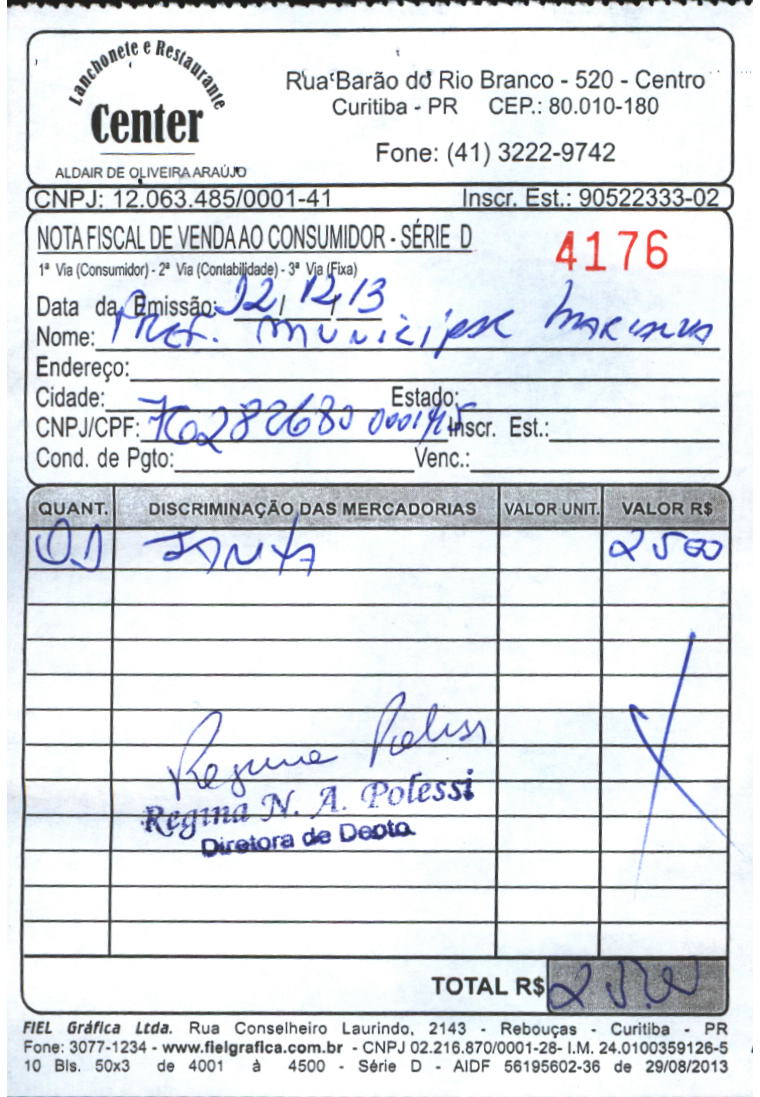 Lanchonete e Restaurante
Center
ALDAIR DE OLIVEIRA ARAÚJO
Rua Barão do Rio Branco - 520 - Centro
Curitiba - PR CEP.: 80.010-180
Fone: (41) 3222-9742
CNPJ: 12.063.485/0001-41 Inscr. Est.: 90522333-02
NOTA FISCAL DE VENDA AO CONSUMIDOR - SÉRIE D 4176
1ª Via (Consumidor) - 2ª Via (Contabilidade) - 3ª Via (Fixa)
Data da Emissão: 12/12/13
Nome: Pref. Municipal Marialva
Endereço:
Cidade: Estado:
CNPJ/CPF: 76282680 0001/45 Inscr. Est.:
Cond. de Pgto: Venc.:
QUANT. DISCRIMINAÇÃO DAS MERCADORIAS VALOR UNIT. VALOR R$
01 JANTA 2500
Regina Polessi
Regina N. A. Polessi
Diretora de Depto.
TOTAL R$ 25,00
FIEL Gráfica Ltda. Rua Conselheiro Laurindo, 2143 - Rebouças - Curitiba - PR
Fone: 3077-1234 - www.fielgrafica.com.br - CNPJ 02.216.870/0001-28- I.M. 24.0100359126-5
10 Bls. 50x3 de 4001 à 4500 - Série D - AIDF 56195602-36 de 29/08/2013